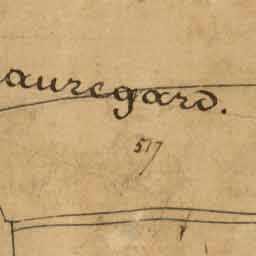 auregard.
517